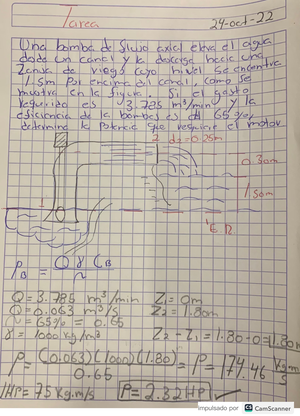 Tarea
24-oct-22
Una bomba de flujo axial eleva el agua
desde un canal y la descarga hacia una
Zanja de riego cuyo nivel se encuentra
1.5m Por encima del canal, como se
muestra en la figura. Si el gasto
requerido es 3.785 m³/min y la
eficiencia de la bomba es del 65%
determine la Potencia que requiere el motor
2 d₂=0.25m
0.30m
1.50m
1
P_B = Q γ C_B / η
Q = 3.785 m³/min Z₁ = 0m
Q = 0.063 m³/s Z₂ = 1.80m
η = 65% = 0.65
γ = 1000 kg/m³ Z₂ - Z₁ = 1.80 - 0 = 1.80m
P = (0.063)(1000)(1.80) / 0.65 = P = 174.46 kg·m/s
1HP = 75 Kg.m/s P = 2.32 HP
Impulsado por CS CamScanner